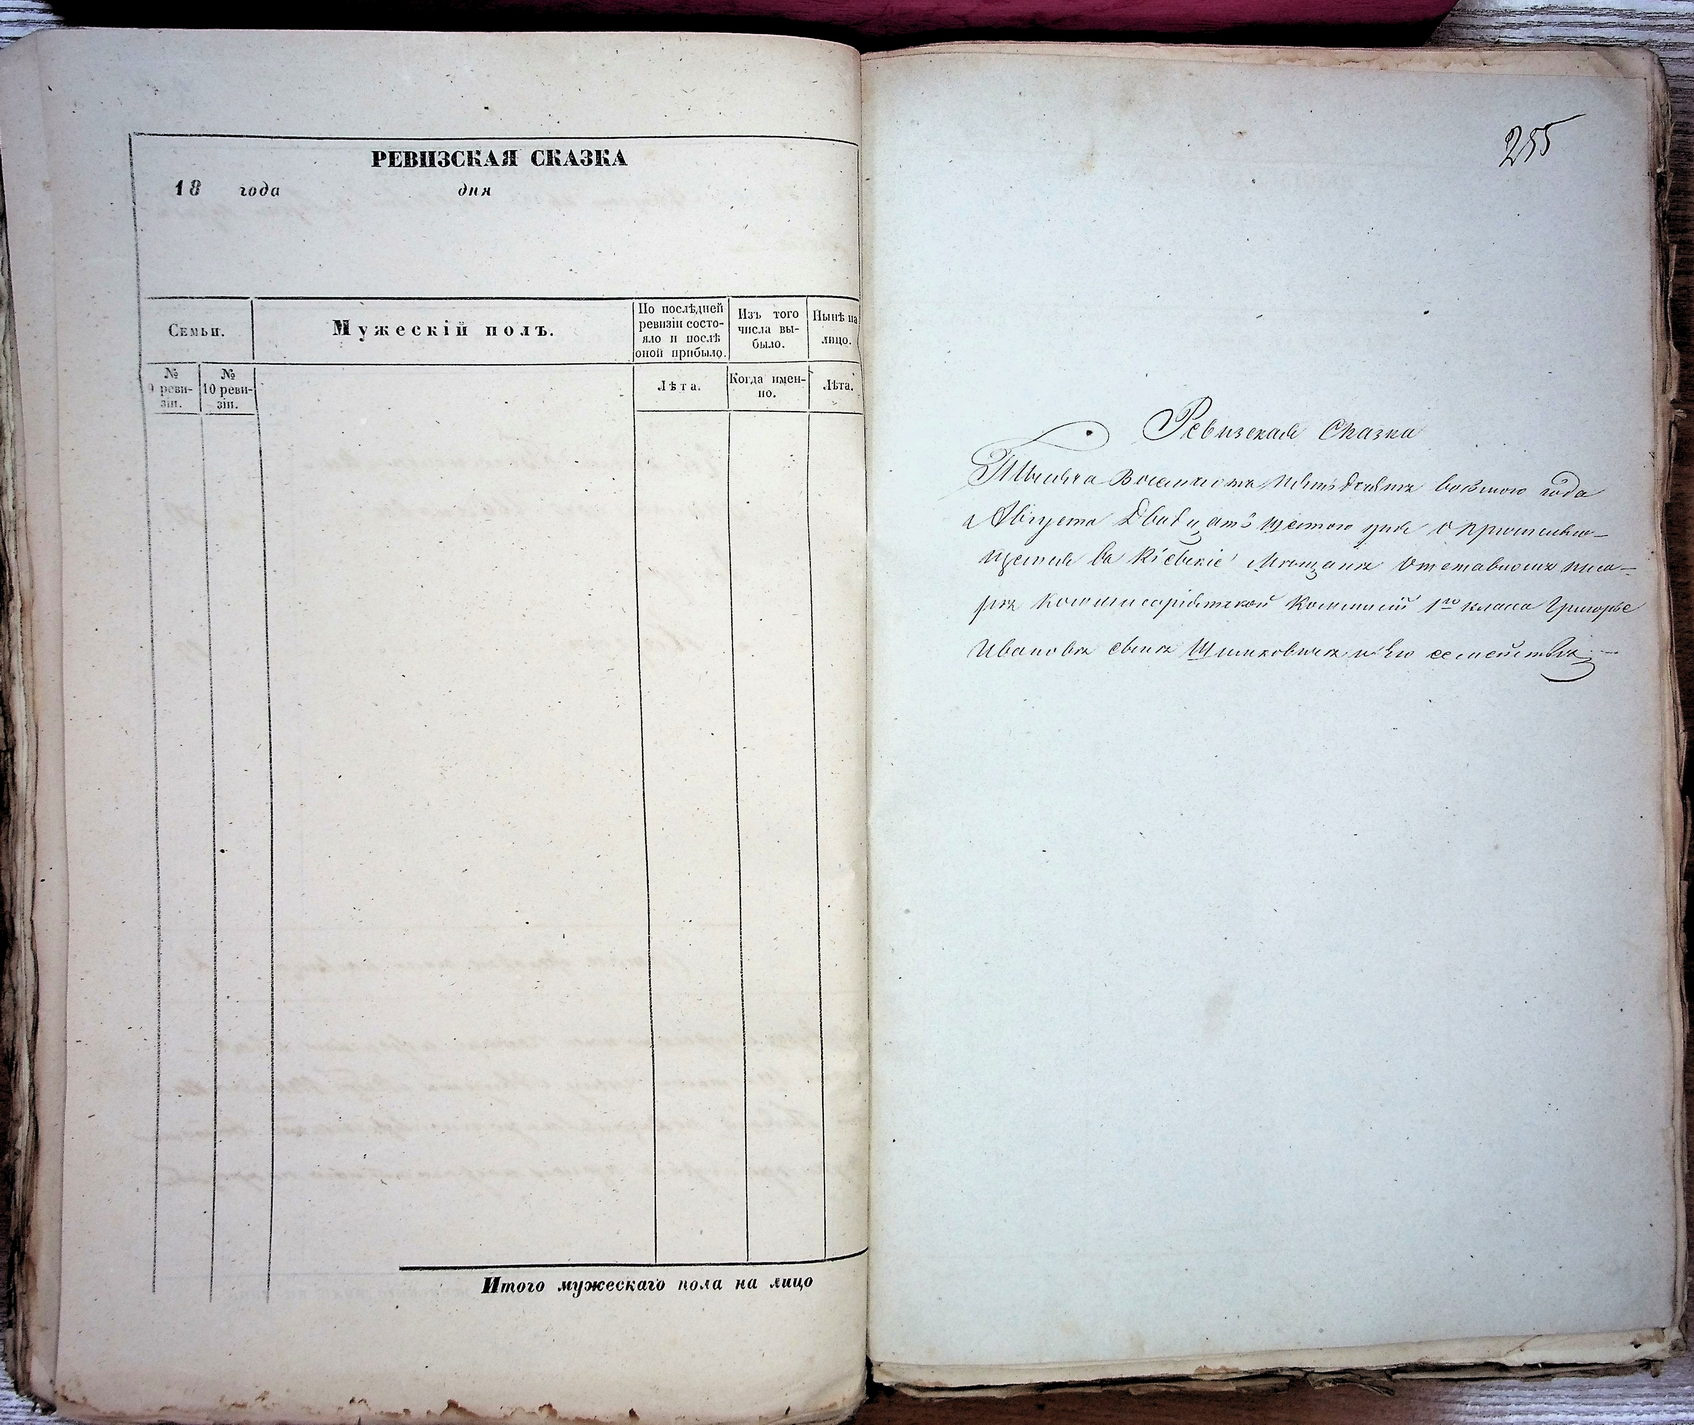 РЕВИЗСКАЯ СКАЗКА
18 года дня
Семьи.
Мужескій полъ.
По послѣдней
ревизіи состо-
яло и послѣ
оной прибыло.
Изъ того
числа вы-
было.
Нынѣ на
лицо.
№
9 реви-
зіи.
№
10 реви-
зіи.
Лѣта.
Когда имен-
но.
Лѣта.
Итого мужескаго пола на лицо
255
Ревизская Сказка
Тысяча Восемьсотъ пятьдесятъ восьмого года
Августа Двадцать шестого дня о причислив-
шемся въ Кіевскіе Мѣщане Отставномъ писа-
рѣ Коммисаріятской Коммисіи 1го класа Григорье
Ивановѣ сынѣ и его семействѣ